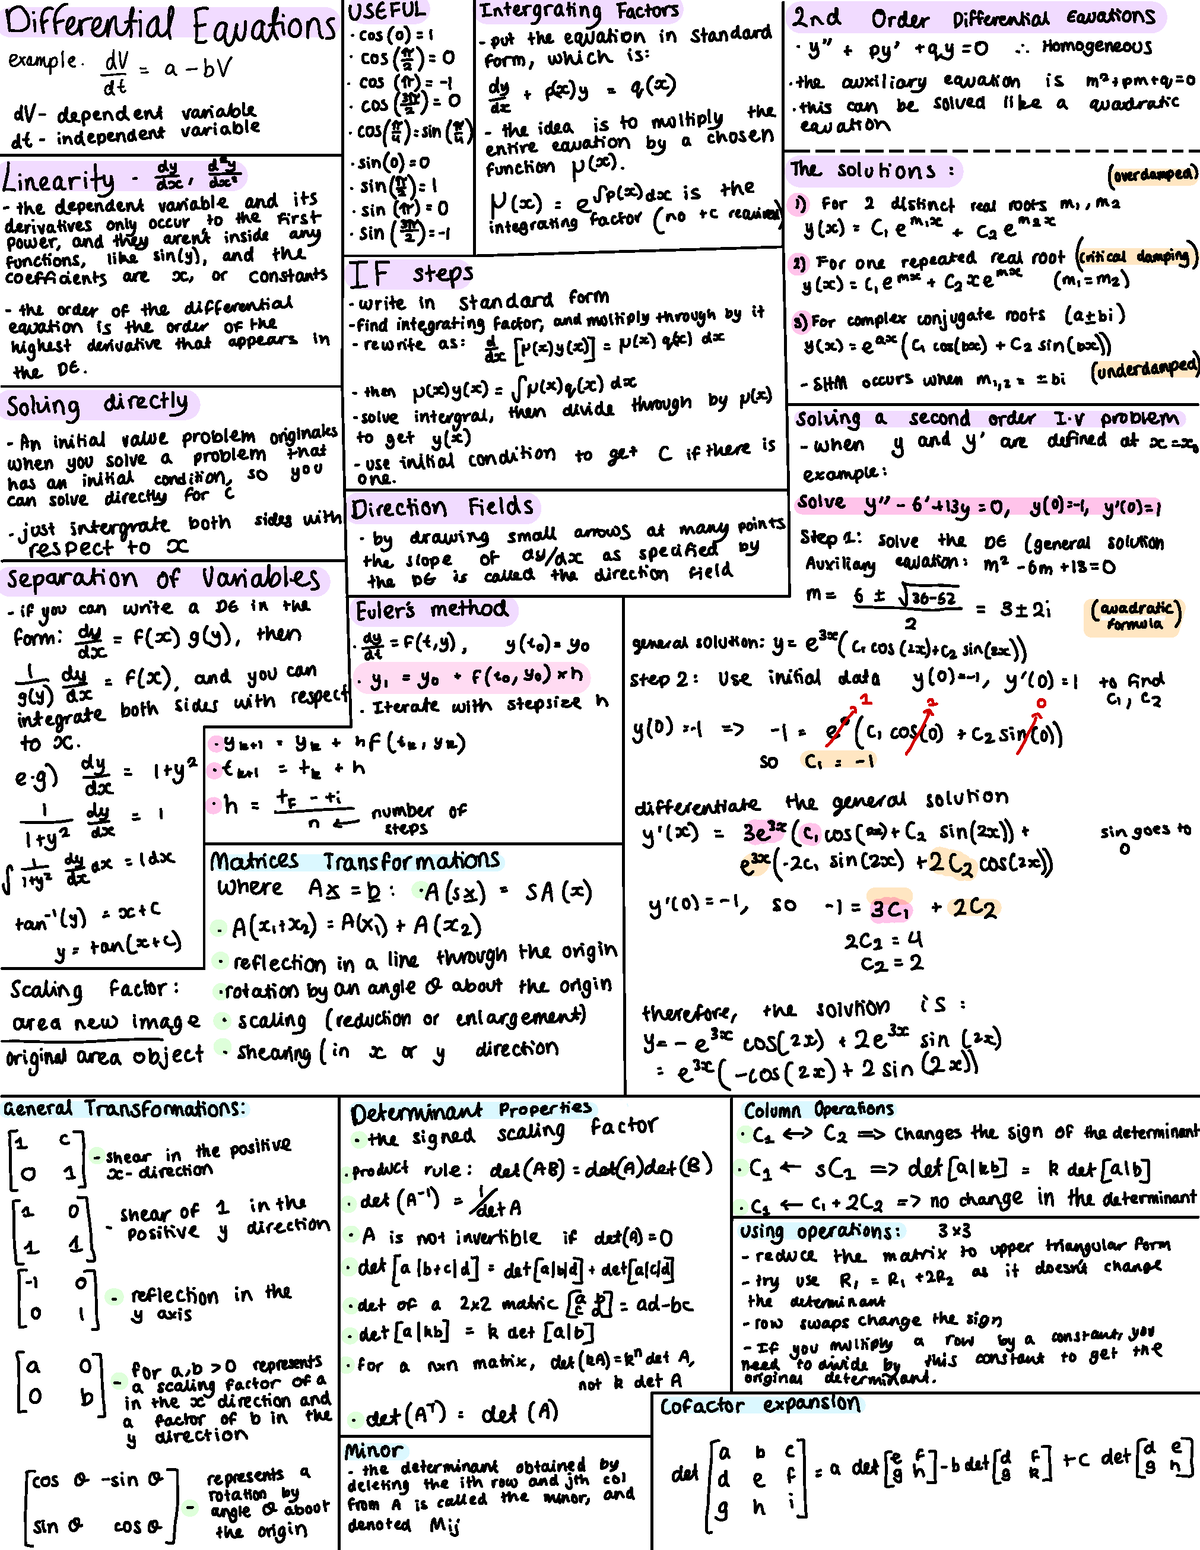 Differential Equations
example. dV/dt = a - bV
dV - dependent variable
dt - independent variable
Linearity - dy/dx, d²y/dx²
- the dependent variable and its
derivatives only occur to the first
power, and they aren't inside any
functions, like sin(y), and the
coefficients are x, or constants
- the order of the differential
equation is the order of the
highest derivative that appears in
the DE.
Solving directly
- An initial value problem originates
when you solve a problem that
has an initial condition, so you
can solve directly for C
- just intergrate both sides with
respect to x
Separation of Variables
- if you can write a DE in the
form: dy/dx = f(x) g(y), then
1/g(y) dy/dx = f(x), and you can
integrate both sides with respect
to x.
e.g) dy/dx = 1+y²
1/1+y² dy/dx = 1
∫ 1/1+y² dy/dx dx = 1dx
tan⁻¹(y) = x+c
y = tan(x+c)
Scaling Factor:
area new image
original area object
USEFUL
· cos(0) = 1
· cos(π/2) = 0
· cos(π) = -1
· cos(3π/2) = 0
· cos(π/4) = sin(π/4)
· sin(0) = 0
· sin(π/2) = 1
· sin(π) = 0
· sin(3π/2) = -1
Intergrating Factors
- put the equation in standard
form, which is:
dy/dx + p(x)y = q(x)
- the idea is to multiply the
entire equation by a chosen
function μ(x).
μ(x) = e^∫p(x)dx is the
integrating factor (no +c required)
IF steps
- write in standard form
- find integrating factor, and multiply through by it
- rewrite as: d/dx [μ(x)y(x)] = μ(x) q(x) dx
- then μ(x)y(x) = ∫μ(x)q(x) dx
- solve intergral, then divide through by μ(x)
to get y(x)
- use initial condition to get C if there is
one.
Direction Fields
- by drawing small arrows at many points
the slope of dy/dx as specified by
the DE is called the direction field
Euler's method
· dy/dt = f(t,y), y(t₀) = y₀
· y₁ = y₀ + f(t₀, y₀) × h
· Iterate with stepsize h
· yₖ₊₁ = yₖ + hf(tₖ, yₖ)
· tₖ₊₁ = tₖ + h
· h = tF - ti / n ← number of
steps
Matrices Transformations
where Ax = b: · A(sx) = SA(x)
· A(x₁+x₂) = A(x₁) + A(x₂)
· reflection in a line through the origin
· rotation by an angle θ about the origin
· scaling (reduction or enlargement)
· shearing (in x or y direction
2nd Order Differential Equations
· y" + py' + qy = 0 ∴ Homogeneous
· the auxiliary equation is m²+pm+q=0
· this can be solved like a quadratic
equation
The solutions: (overdamped)
1) For 2 distinct real roots m₁, m₂
y(x) = C₁e^m₁x + C₂e^m₂x
2) For one repeated real root (critical damping)
y(x) = C₁e^mx + C₂xe^mx (m₁=m₂)
3) For complex conjugate roots (a±bi)
y(x) = e^ax (C₁ cos(bx) + C₂ sin(bx))
- SHM occurs when m₁,₂ = ±bi (underdamped)
Solving a second order I.V problem
- when y and y' are defined at x=x₀
example:
Solve y" - 6' + 13y = 0, y(0)=-1, y'(0)=1
Step 1: Solve the DE (general solution
Auxiliary equation: m² - 6m + 13 = 0
m = 6 ± √36-52 / 2 = 3 ± 2i (quadratic
formula)
general solution: y = e^3x (C₁ cos(2x) + C₂ sin(2x))
step 2: Use initial data y(0)=-1, y'(0)=1 to find
C₁, C₂
1 1 0
y(0) = -1 => -1 = e⁰(C₁ cos(0) + C₂ sin(0))
so C₁ = -1
differentiate the general solution
y'(x) = 3e^3x (C₁ cos(2x) + C₂ sin(2x)) +
e^3x (-2C₁ sin(2x) + 2C₂ cos(2x))
sin goes to
0
y'(0) = -1, so -1 = 3C₁ + 2C₂
2C₂ = 4
C₂ = 2
therefore, the solution is:
y = - e^3x cos(2x) + 2e^3x sin(2x)
= e^3x (-cos(2x) + 2 sin(2x))
General Transformations:
[1 c
0 1] - shear in the positive
x-direction
[1 0
1 1] - shear of 1 in the
positive y direction
[-1 0
0 1] - reflection in the
y axis
[a 0
0 b] - for a,b >0 represents
a scaling factor of a
in the x direction and
a factor of b in the
y direction
[cos θ -sin θ
sin θ cos θ] - represents a
rotation by
angle θ about
the origin
Determinant Properties
· the signed scaling factor
· product rule: det(AB) = det(A)det(B)
· det(A⁻¹) = 1/det A
· A is not invertible if det(A) = 0
· det[a|b+c|d] = det[a|b|d] + det[a|c|d]
· det of a 2x2 matric [a b c d] = ad-bc
· det[a|kb] = k det[a|b]
· for a nxn matrix, det(kA) = kⁿ det A,
not k det A
· det(Aᵀ) = det(A)
Minor
- the determinant obtained by
deleting the ith row and jth col
from A is called the minor, and
denoted Mij
Column Operations
· C₁ ↔ C₂ => Changes the sign of the determinant
· C₁ ← sC₁ => det[a|kb] = k det[a|b]
· C₁ ← C₁ + 2C₂ => no change in the determinant
Using operations: 3x3
- reduce the matrix to upper triangular form
- try use R₁ = R₁ + 2R₂ as it doesn't change
the determinant
- row swaps change the sign
- If you multiply a row by a constant, you
need to divide by this constant to get the
original determinant.
Cofactor expansion
det [a b c
d e f
g h i] = a det [e f g h] - b det [d f g k] + c det [d e g h]